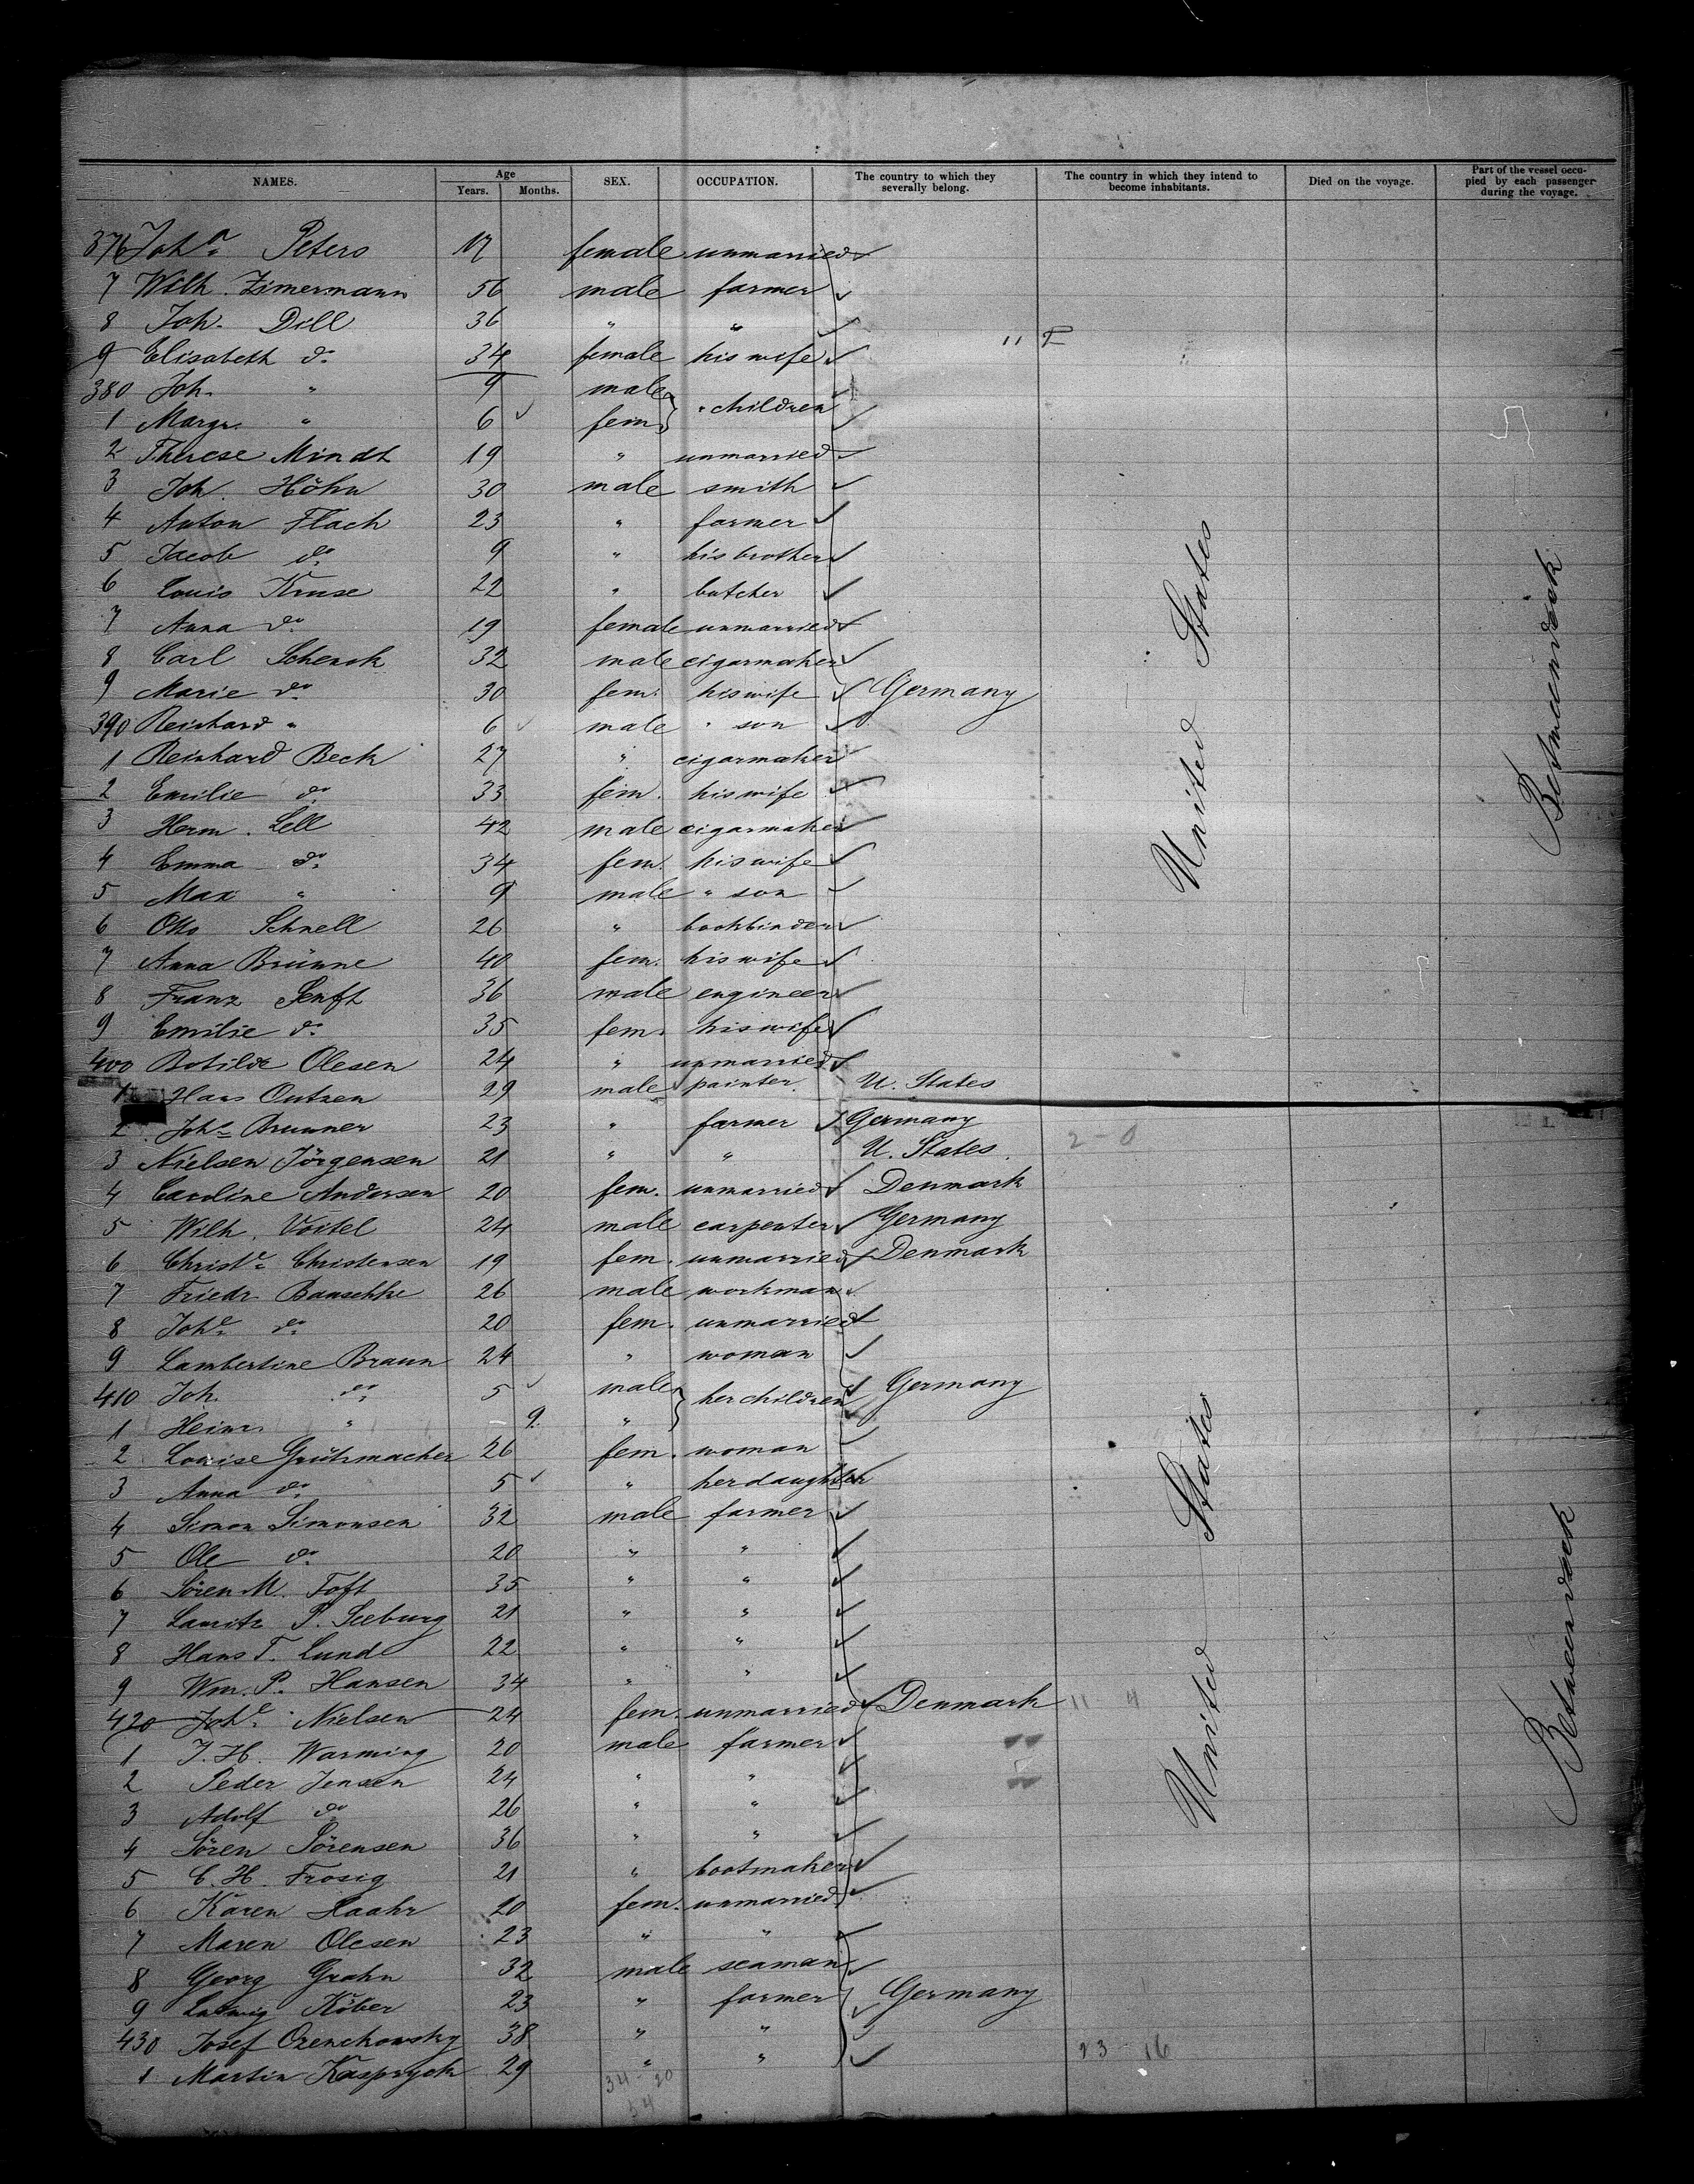 NAMES. Age Years. Months. SEX. OCCUPATION. The country to which they severally belong. The country in which they intend to become inhabitants. Died on the voyage. Part of the vessel occupied by each passenger during the voyage.
376 Joh.a Peters 17 female unmarried
7 Wilh. Zimermann 56 male farmer
8 Joh. Dill 36 " "
9 Elisabeth do 34 female his wife
380 Joh. " 9 male
1 Margr. " 6 fem. " children
2 Therese Mindt 19 " unmarried
3 Joh. Höhn 30 male smith
4 Anton Flach 23 " farmer
5 Jacob do 9 " his brother
6 Louis Kruse 22 " butcher
7 Anna do 19 female unmarried
8 Carl Schenck 32 male cigarmaker
9 Marie do 30 fem. his wife Germany
390 Reinhard " 6 male " son
1 Reinhard Beck 27 " cigarmaker
2 Emilie do 33 fem. his wife
3 Herm. Lell 42 male cigarmaker
4 Emma do 34 fem. his wife
5 Max " 9 male " son
6 Otto Schnell 26 " bookbinder
7 Anna Brünne 40 fem. his wife
8 Franz Senft 36 male engineer
9 Emilie do 35 fem. his wife
400 Botilde Olesen 24 " unmarried
1 Hans Outzen 29 male painter. U. States
2 Joh.s Brunner 23 " farmer Germany
3 Nielsen Jörgensen 21 " " U. States. 2-0
4 Caroline Andersen 20 fem. unmarried Denmark
5 Wilh. Voitel 24 male carpenter Germany
6 Christ.e Christensen 19 fem. unmarried Denmark
7 Friedr. Bauschke 26 male workman
8 Joh.e do 20 fem. unmarried
9 Lambertine Braun 24 " woman
410 Joh. do 5 male her children Germany
1 Heinr. " - 9. "
2 Louise Grützmacher 26 fem. woman
3 Anna do 5 " her daughter
4 Simon Simonsen 32 male farmer
5 Ole do 20 " "
6 Sören M. Toft 35 " "
7 Lauritz P. Seeburg 21 " "
8 Hans T. Lund 22 " "
9 Wm. P. Hansen 34 " "
420 Joh.e Nielsen 24 fem. unmarried Denmark 11 4
1 J. H. Warming 20 male farmer
2 Peder Jensen 24 " "
3 Adolf do 26 " "
4 Sören Sörensen 36 " "
5 C. H. Frosig 21 " bootmaker
6 Karen Haahr 20 fem. unmarried
7 Maren Olesen 23 " "
8 Georg Grahn 32 male seaman
9 Ludwig Köber 23 " farmer Germany
430 Josef Ozenchowsky 38 " "
1 Martin Kasprzck 29 " " 23 16
34-20
54
United States
Betweendeck
United States
Betweendeck